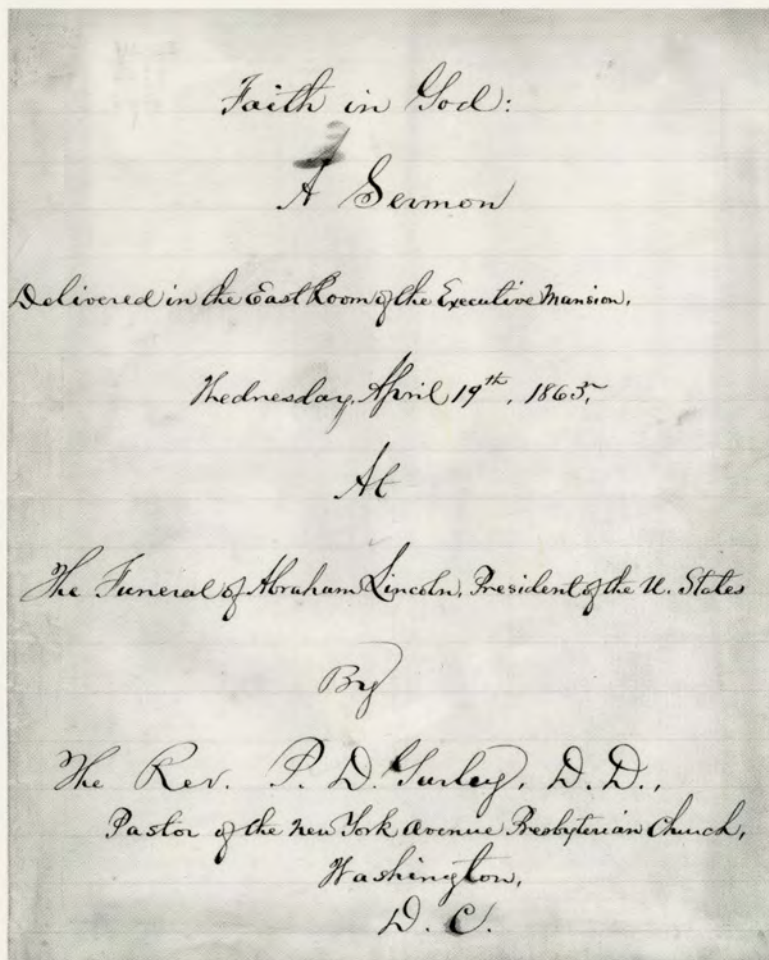 Faith in God:
A Sermon
Delivered in the East Room of the Executive Mansion,
Wednesday, April 19th, 1865,
At
The Funeral of Abraham Lincoln, President of the U. States
By
The Rev. P. D. Gurley, D.D.,
Pastor of the New York Avenue Presbyterian Church,
Washington,
D. C.